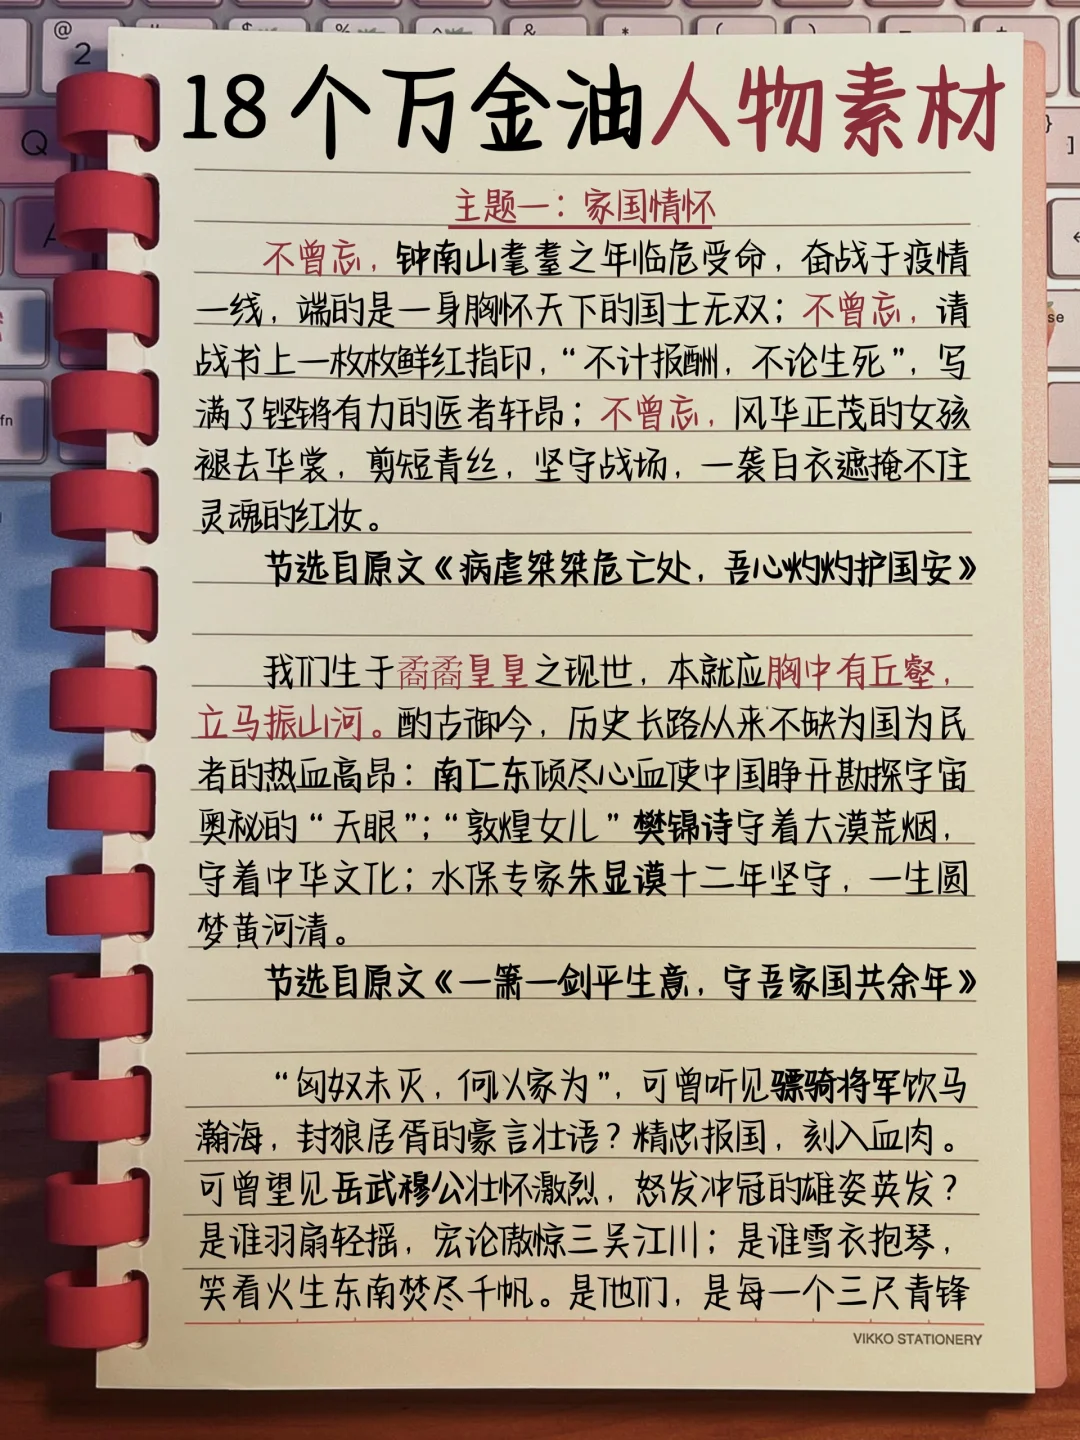 @ $ % ^ & * ( ) – +
2
Q
A
fn
}
]
se
18个万金油人物素材
主题一：家国情怀
不曾忘，钟南山耄耋之年临危受命，奋战于疫情
一线，端的是一身胸怀天下的国士无双；不曾忘，请
战书上一枚枚鲜红指印，“不计报酬，不论生死”，写
满了铿锵有力的医者轩昂；不曾忘，风华正茂的女孩
褪去华裳，剪短青丝，坚守战场，一袭白衣遮掩不住
灵魂的红妆。
节选自原文《病虐桀桀危亡处，吾心灼灼护国安》
我们生于矞矞皇皇之现世，本就应胸中有丘壑，
立马振山河。酌古御今，历史长路从来不缺为国为民
者的热血高昂：南仁东倾尽心血使中国睁开勘探宇宙
奥秘的“天眼”；“敦煌女儿”樊锦诗守着大漠荒烟，
守着中华文化；水保专家朱显谟十二年坚守，一生圆
梦黄河清。
节选自原文《一箫一剑平生意，守吾家国共余年》
“匈奴未灭，何以家为”，可曾听见骠骑将军饮马
瀚海，封狼居胥的豪言壮语？精忠报国，刻入血肉。
可曾望见岳武穆公壮怀激烈，怒发冲冠的雄姿英发？
是谁羽扇轻摇，宏论傲惊三吴江川；是谁雪衣抱琴，
笑看火生东南焚尽千帆。是他们，是每一个三尺青锋
VIKKO STATIONERY